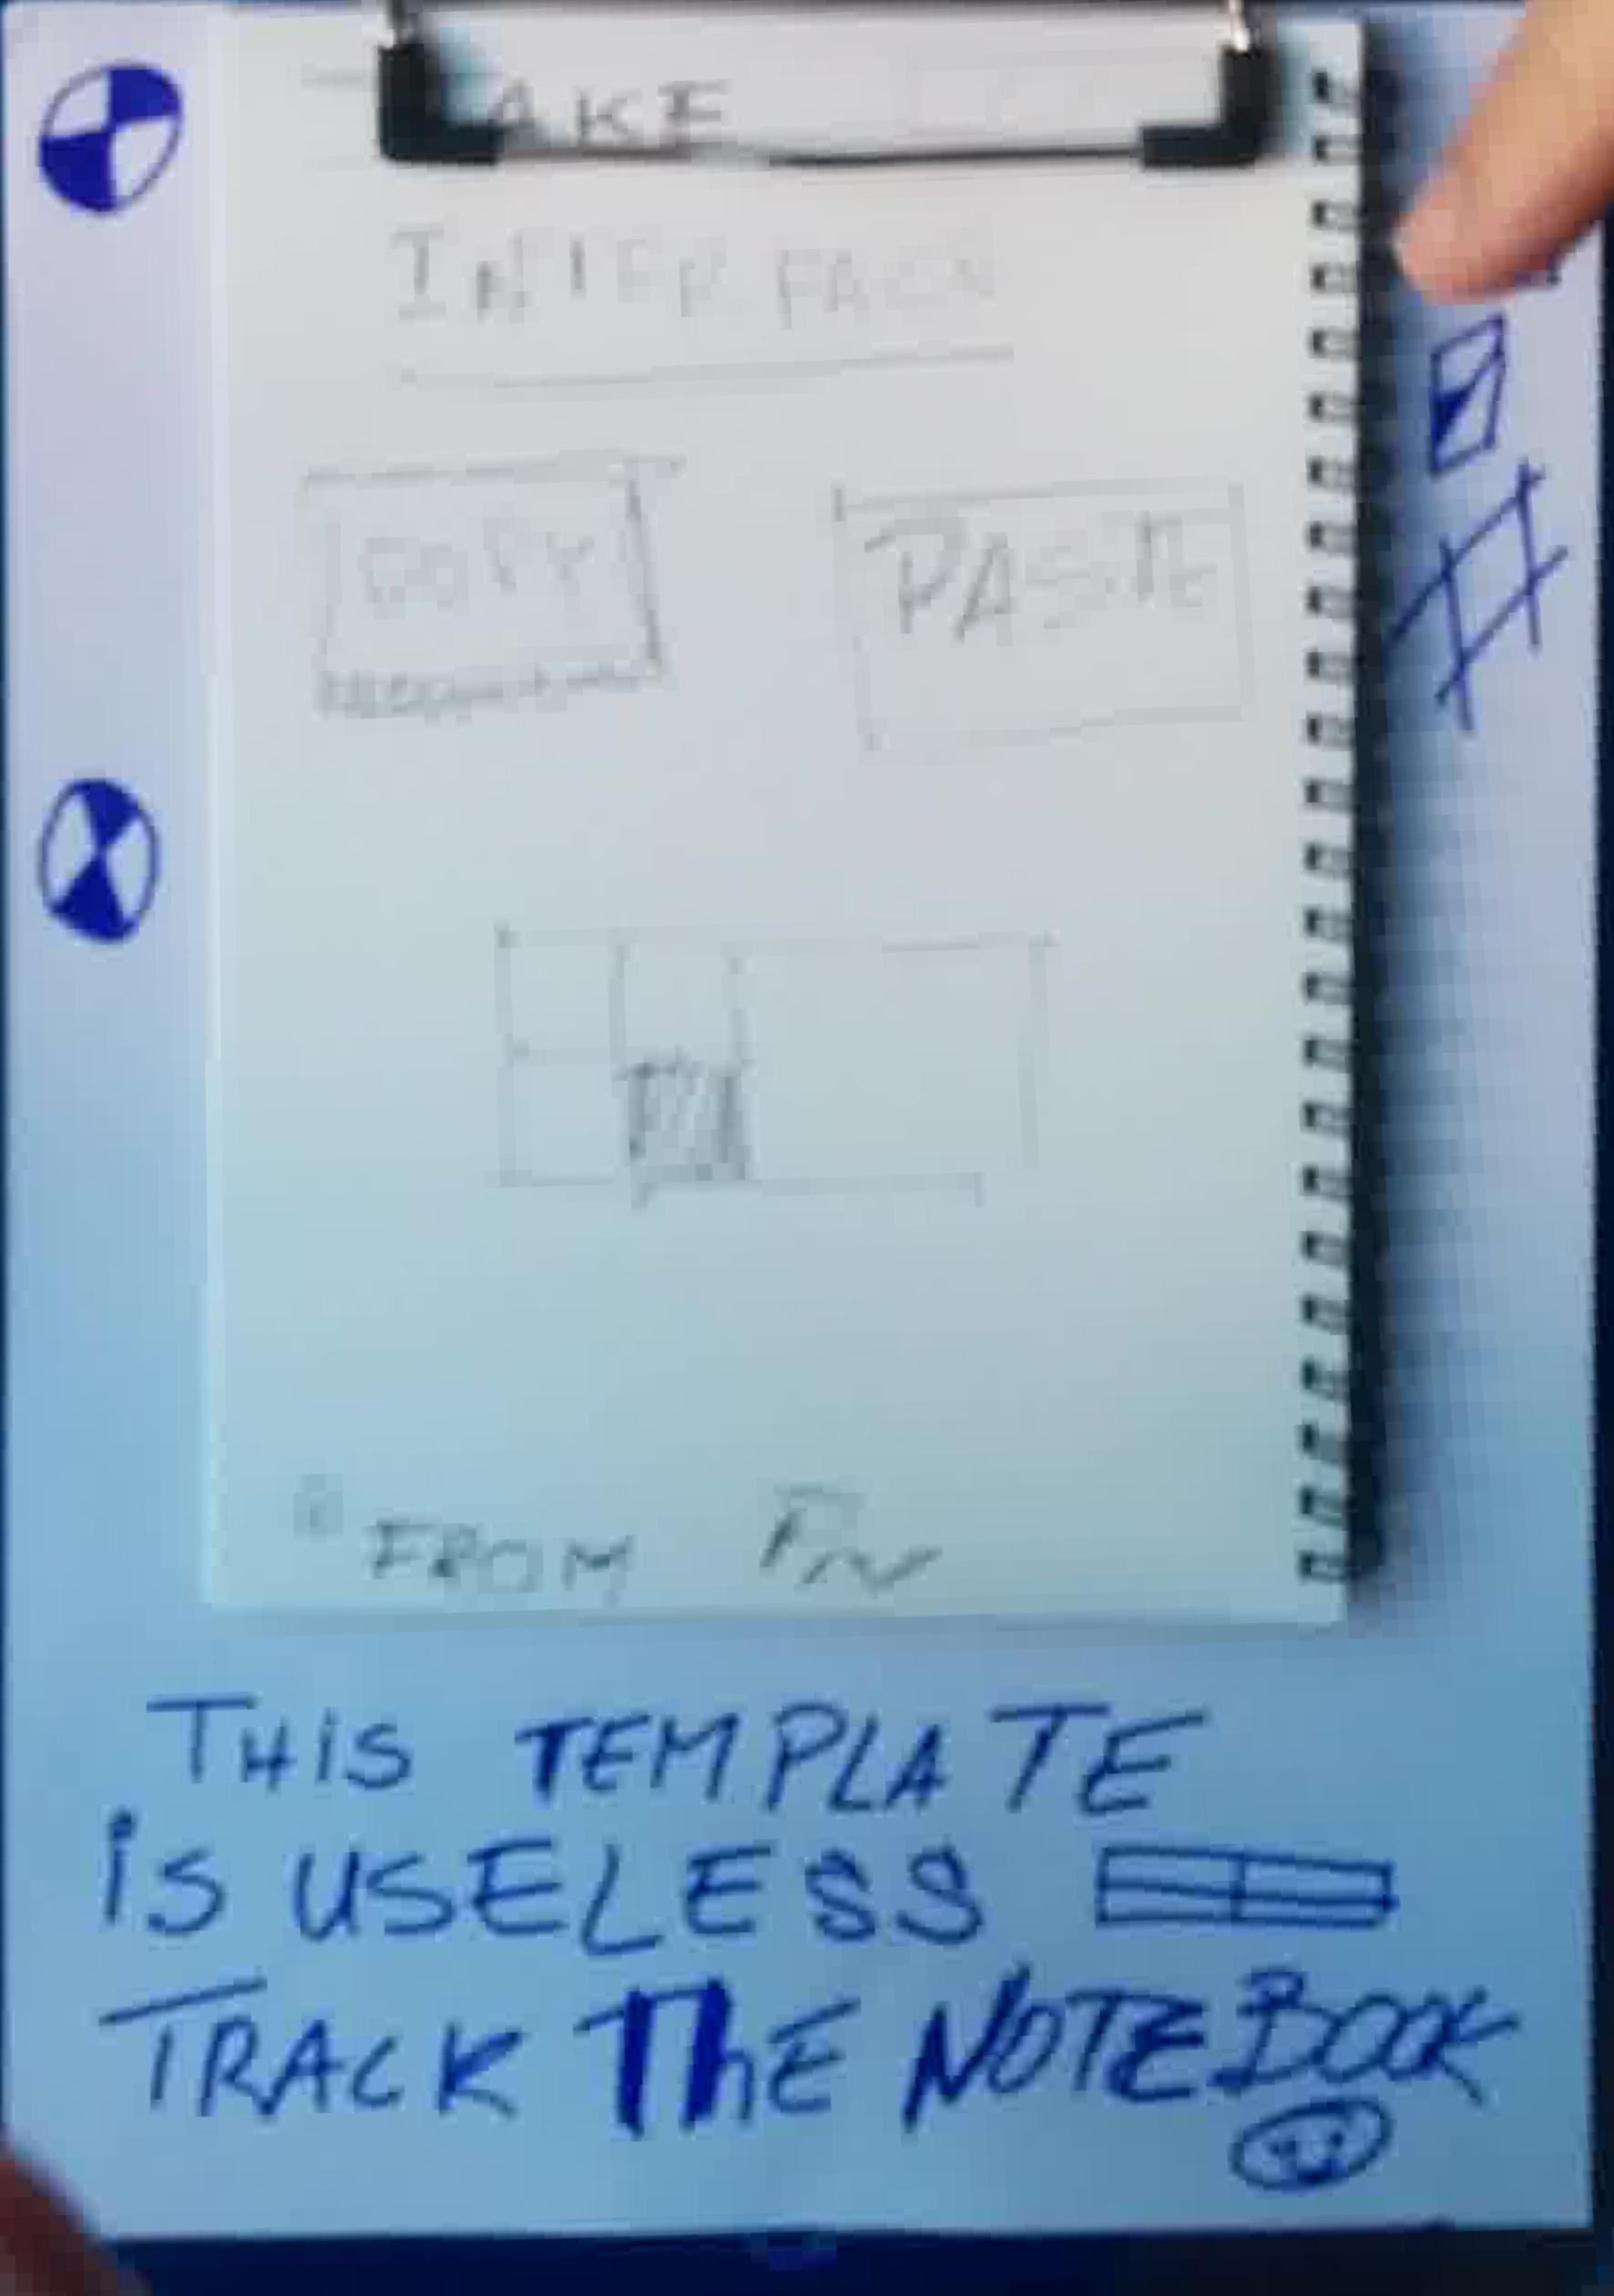 AKE
INTERFACE
COPY
PASTE
FROM
THiS TEMPLATE
iS USELESS
TRACK ThE NOTEBOOK